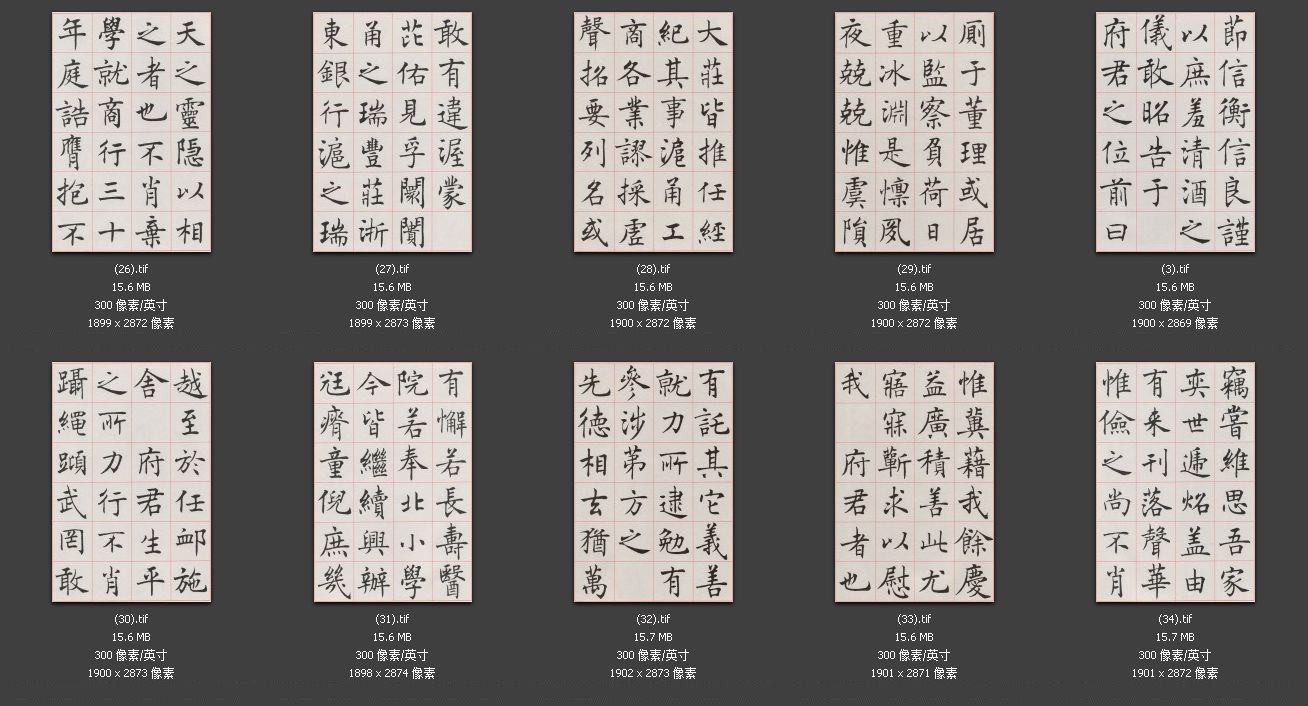 天之靈隱以相
之者也不肖棄
學就商行三十
年庭誥膺抱不
(26).tif
15.6 MB
300 像素/英寸
1899 x 2872 像素
敢有違渥蒙
芘佑見孚闤闠
甬之瑞豐莊浙
東銀行滬之瑞
(27).tif
15.6 MB
300 像素/英寸
1899 x 2873 像素
大莊皆推任經
紀其事滬甬工
商各業謬採虛
聲招要列名或
(28).tif
15.6 MB
300 像素/英寸
1900 x 2872 像素
厠于董理或居
以監察負荷日
重冰淵是懍夙
夜兢兢惟虞隕
(29).tif
15.6 MB
300 像素/英寸
1900 x 2872 像素
節信衡信良謹
以庶羞清酒之
儀敢昭告于
府君之位前曰
(3).tif
15.6 MB
300 像素/英寸
1900 x 2869 像素
越至於任卹施
舍 府君生平
之所力行不肖
躡繩蹞武罔敢
(30).tif
15.6 MB
300 像素/英寸
1900 x 2873 像素
有懈若長壽醫
院若奉北小學
今皆繼續興辦
尪瘠童倪庶幾
(31).tif
15.6 MB
300 像素/英寸
1898 x 2874 像素
有託其它義善
就力所逮勉有
參涉第方之
先德相去猶萬
(32).tif
15.7 MB
300 像素/英寸
1902 x 2873 像素
惟冀藉我餘慶
益廣積善此尤
寤寐蘄求以慰
我 府君者也
(33).tif
15.6 MB
300 像素/英寸
1901 x 2871 像素
竊嘗維思吾家
奕世遞炤盖由
有来刊落聲華
惟儉之尚不肖
(34).tif
15.7 MB
300 像素/英寸
1901 x 2872 像素